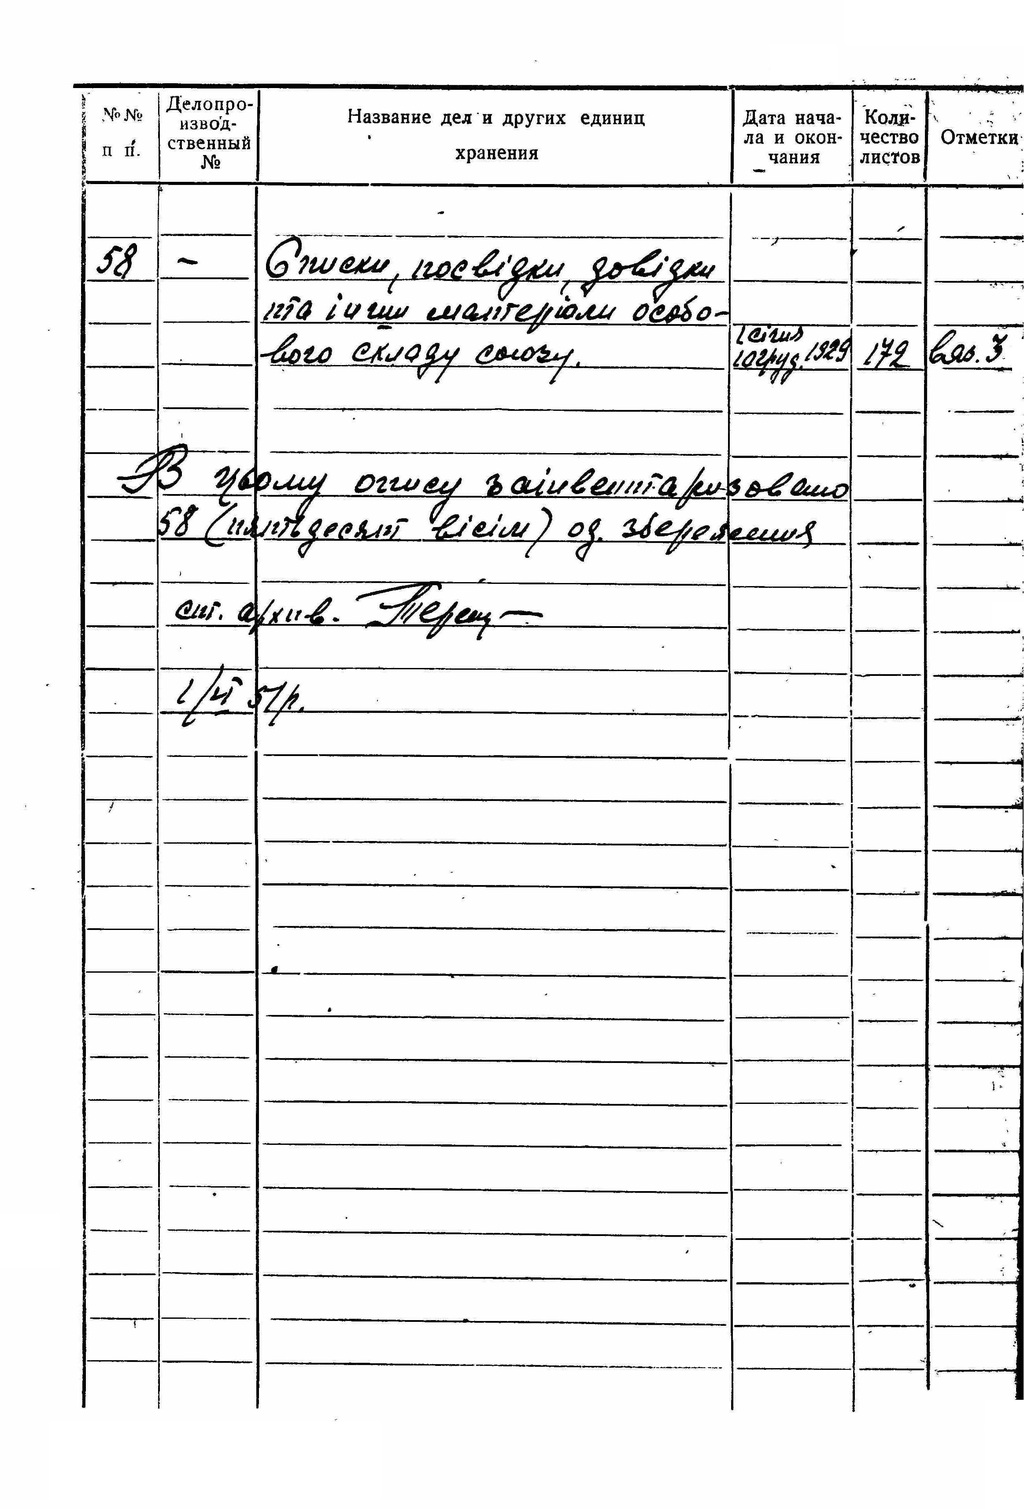 №№ п п. Делопро-извод-ственный № Название дел и других единиц хранения Дата нача-ла и окон-чания Коли-чество листов Отметки
58 – Списки, посвідки, довідки
та інши матеріали особо-
вого складу союзу. 1 січня 10 груд. 1929 172 вяз. 3
В цьому опису заінвентаризовано
58 (пятьдесят вісім) од. збереження
ст. архив.
51р.